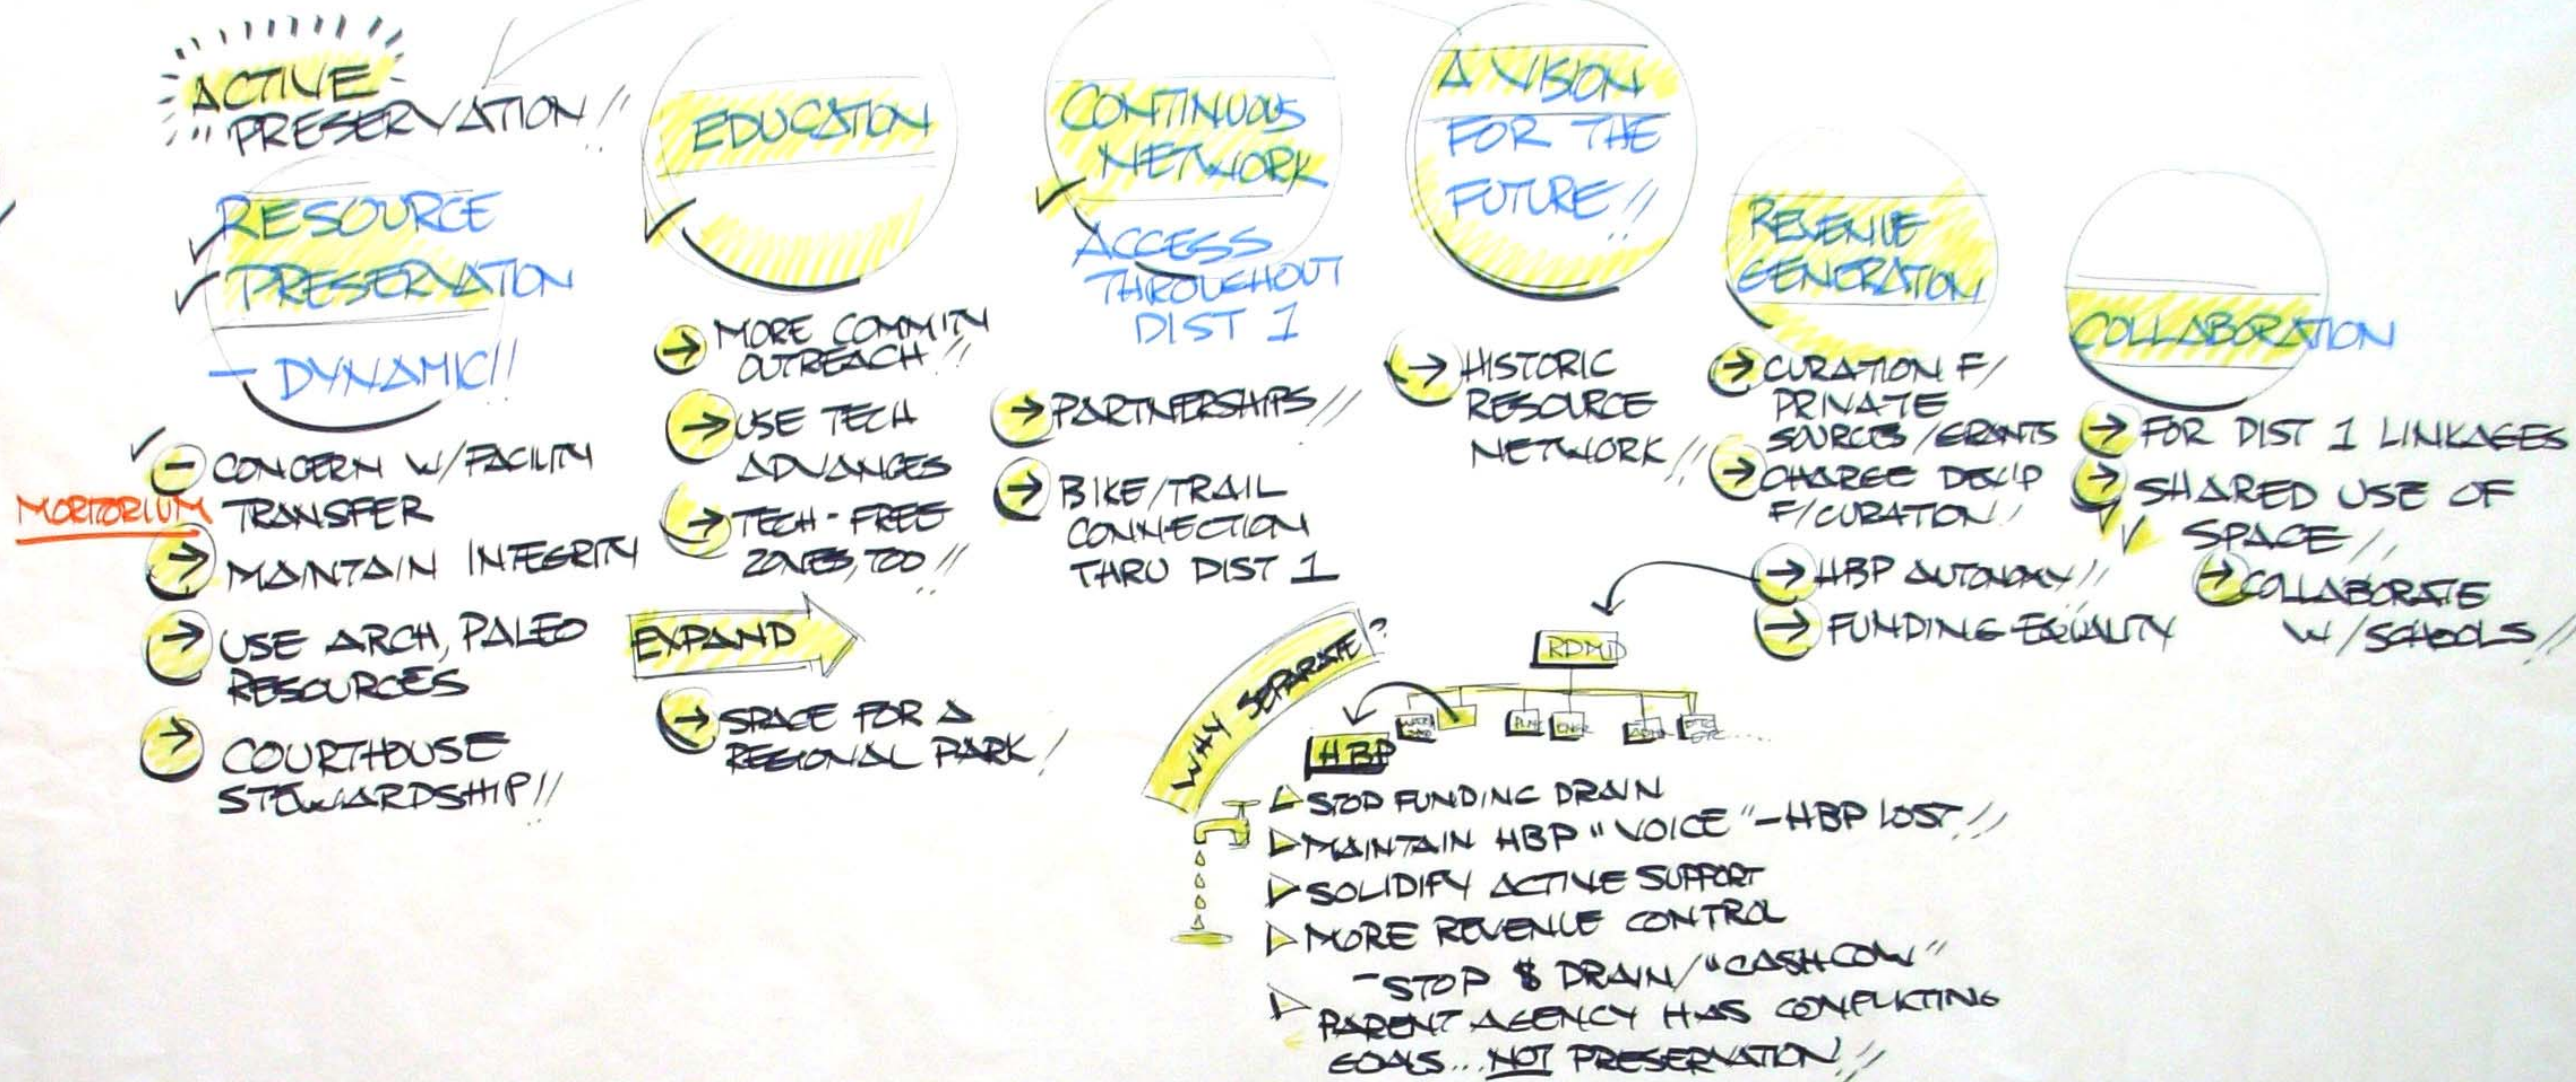 ACTIVE
PRESERVATION!!
RESOURCE
PRESERVATION
– DYNAMIC!!
CONCERN W/FACILITY
TRANSFER
MORTORIUM
MAINTAIN INTEGRITY
USE ARCH, PALEO
RESOURCES
COURTHOUSE
STEWARDSHIP!!
EDUCATION
MORE COMM'ITY
OUTREACH!!
USE TECH
ADVANCES
TECH-FREE
ZONES, TOO!!
EXPAND
SPACE FOR A
REGIONAL PARK!
CONTINUOUS
NETWORK
ACCESS
THROUGHOUT
DIST 1
PARTNERSHIPS!!
BIKE/TRAIL
CONNECTION
THRU DIST 1
A VISION
FOR THE
FUTURE!!
HISTORIC
RESOURCE
NETWORK!!
REVENUE
GENERATION
CURATION F/
PRIVATE
SOURCES/GRANTS
CHARGE
F/CURATION!
HBP AUTONOMY!!
FUNDING EQUALITY
COLLABORATION
FOR DIST 1 LINKAGES
SHARED USE OF
SPACE!!
COLLABORATE
W/SCHOOLS!!
WHY SEPARATE?
RDMD
HBP
STOP FUNDING DRAIN
MAINTAIN HBP "VOICE" – HBP LOST!!
SOLIDIFY ACTIVE SUPPORT
MORE REVENUE CONTROL
– STOP $ DRAIN/"CASH COW"
PARENT AGENCY HAS CONFLICTING
GOALS...NOT PRESERVATION!!